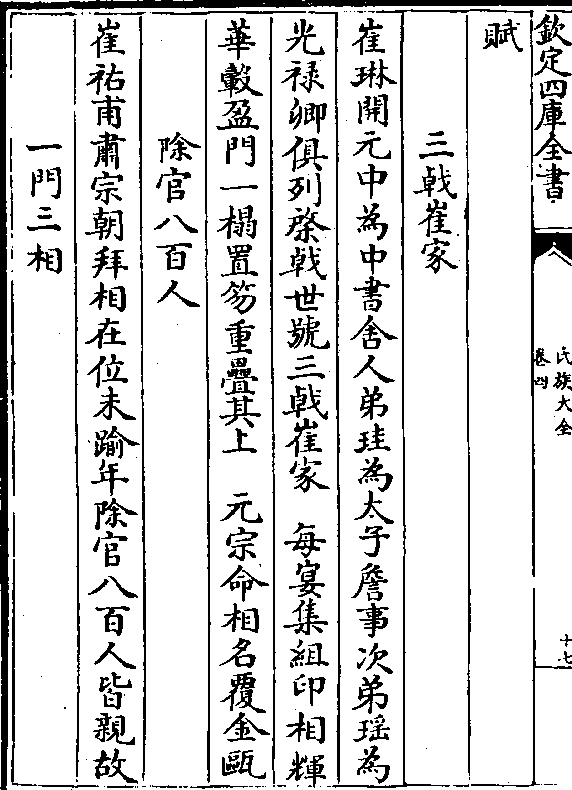 欽定四庫全書
氏族大全
卷四
十七
賦
三戟崔家
崔琳開元中為中書舍人弟珪為太子詹事次弟瑶為
光禄卿俱列棨戟世號三戟崔家　每宴集組印相輝
華轂盈門一榻置笏重疊其上　元宗命相名覆金甌
除官八百人
崔祐甫肅宗朝拜相在位未踰年除官八百人皆親故
一門三相